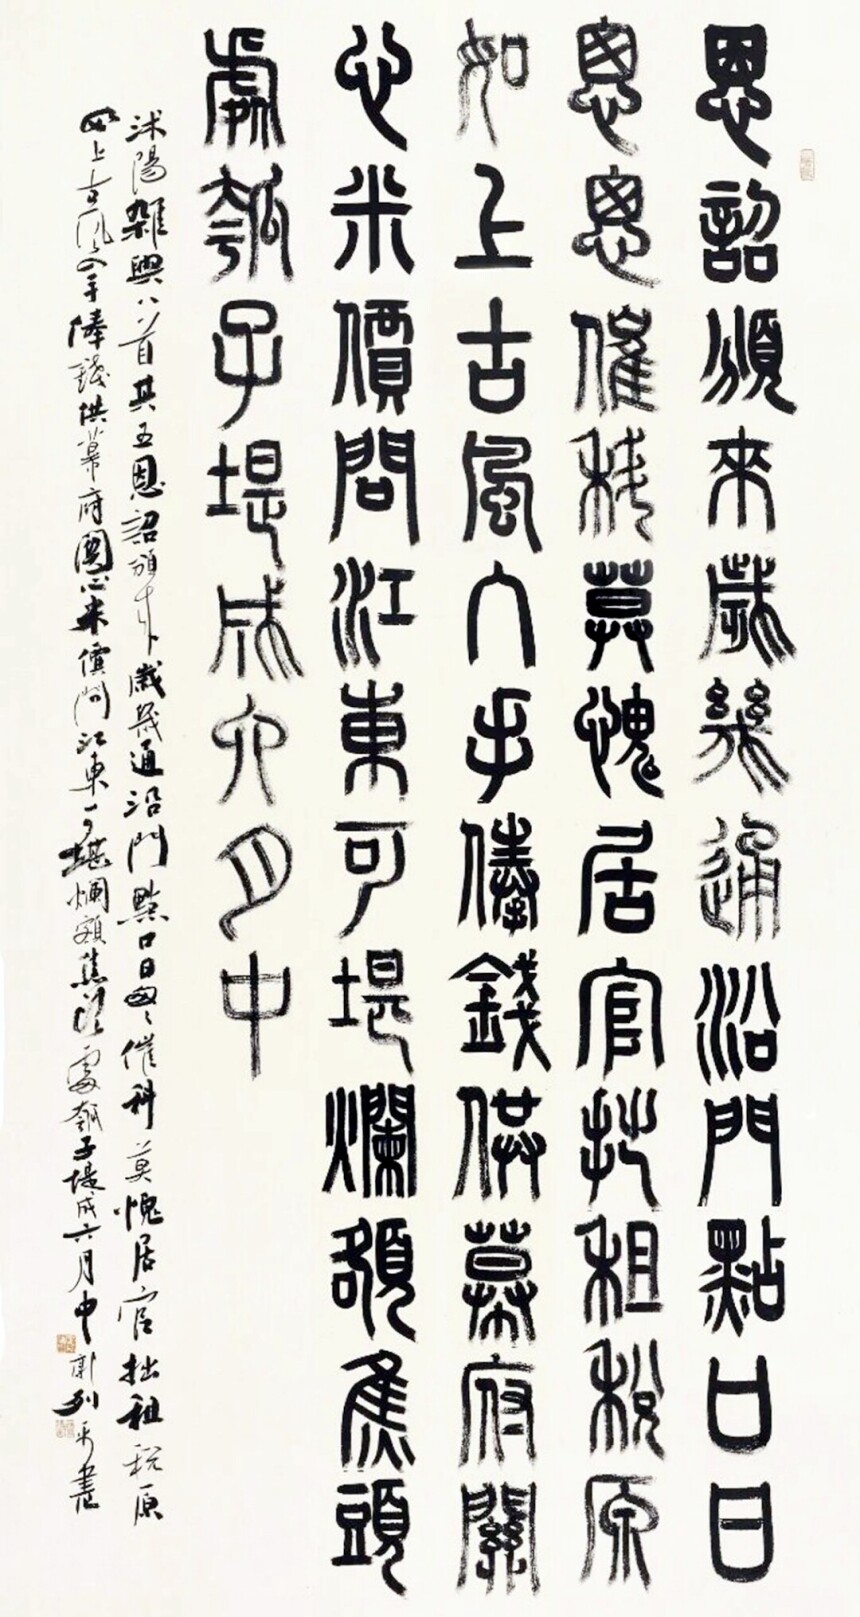 恩詔頒來歲幾通沿門點口日
悤悤催科莫愧居官拙租稅原
如上古風入手俸錢供幕府關
心米價問江東可堪爛額焦頭
處瓠子堤成六月中
沭陽雜興八首其五恩詔頒來歲幾通沿門點口日匆々催科莫愧居官拙租稅原
如上古風入手俸錢供幕府關心米價問江東可堪爛額焦頭處瓠子堤成六月中 郭列平書